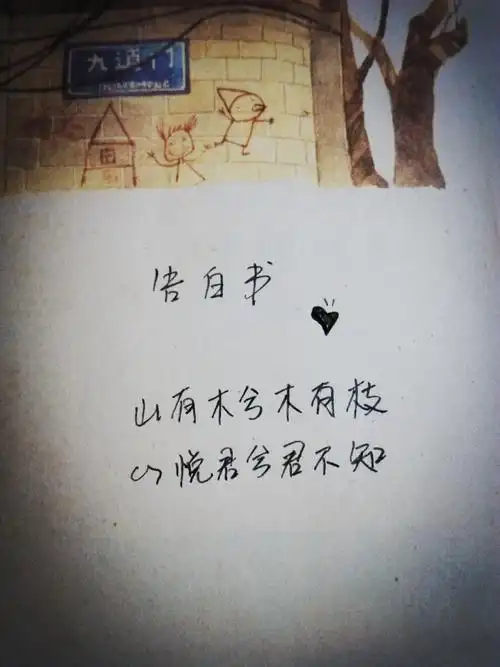 九道门
告白书
山有木兮木有枝
心悦君兮君不知